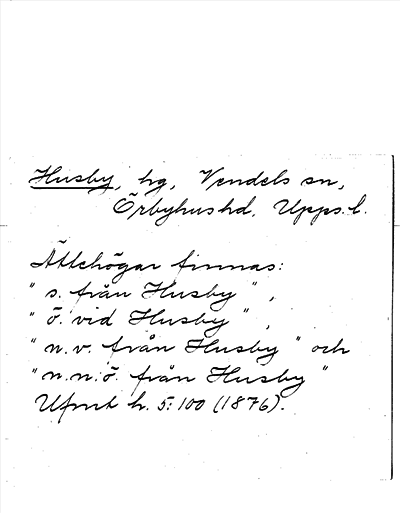 Husby, hg, Vendels sn,
Örbyhus hd, Upps. l.
Ättehögar finnas:
" s. från Husby ",
" ö. vid Husby ",
" n. v. från Husby " och
" n. n. ö. från Husby "
Ufmt h. 5: 100 (1876).